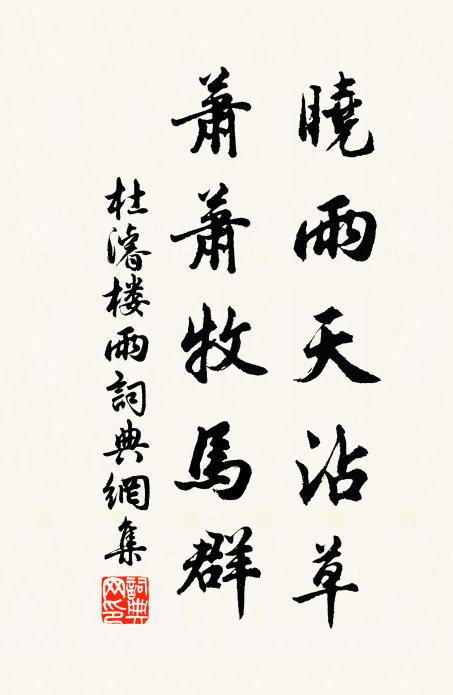 曉雨天沾草
蕭蕭牧馬群
杜濬楼雨詞典網集
詞典网印